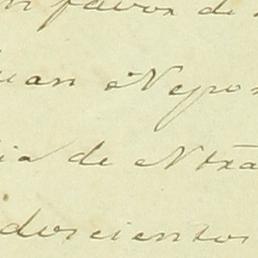 n favor de
uan Nepo
ia de Ntrã
doscientos